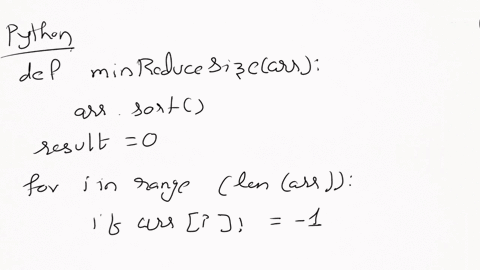 Python
def minReduceSize(arr):
arr. sort()
result = 0
for i in range (len (arr)):
if arr [i] != -1